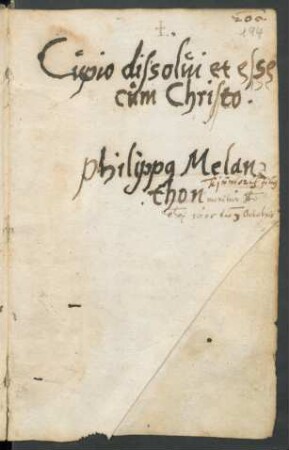 200.
194
Cupio dissolui et esse
cum Christo.
philippg Melan
thon